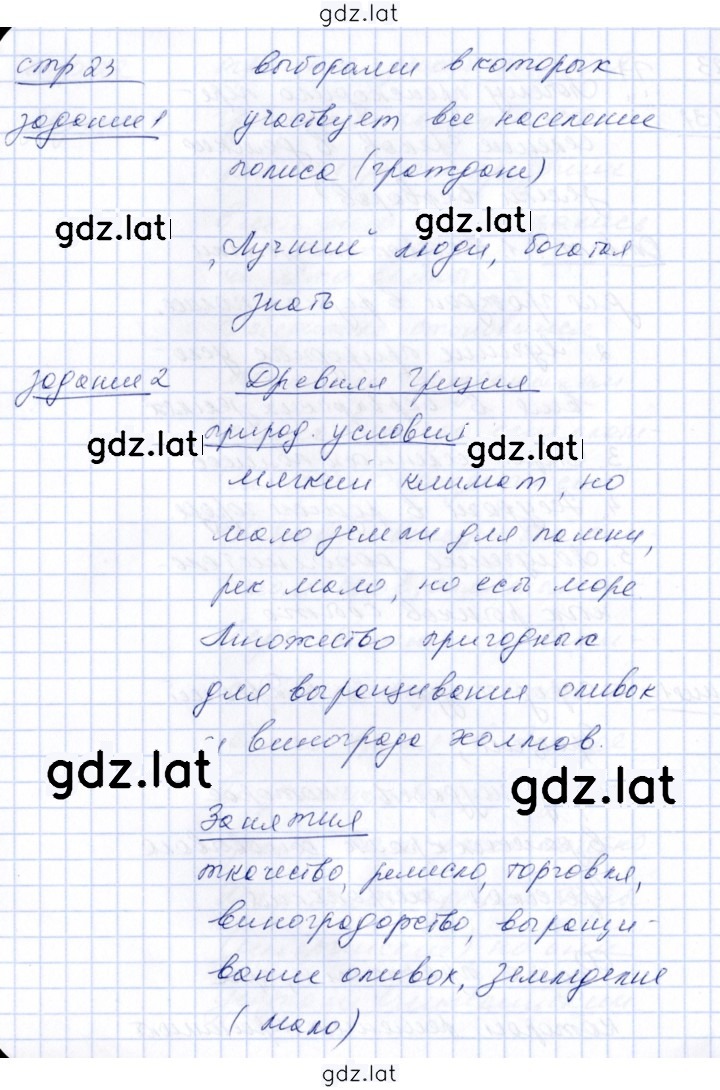 gdz.lat
стр 23
выборами в которых
задание 1
участвует все население
полиса (граждане)
gdz.lat gdz.lat
"Лучший" люди, богатая
знать
задание 2
Древняя Греция
gdz.lat природ. условия gdz.lat
мягкий климат, но
мало земли для пашни,
рек мало, но есть море
Множество пригодных
для выращивания оливок
и винограда холмов.
gdz.lat gdz.lat
Занятия
ткачество, ремесло, торговля,
виноградорство, выращи-
вание оливок, земледелие
(мало)
gdz.lat